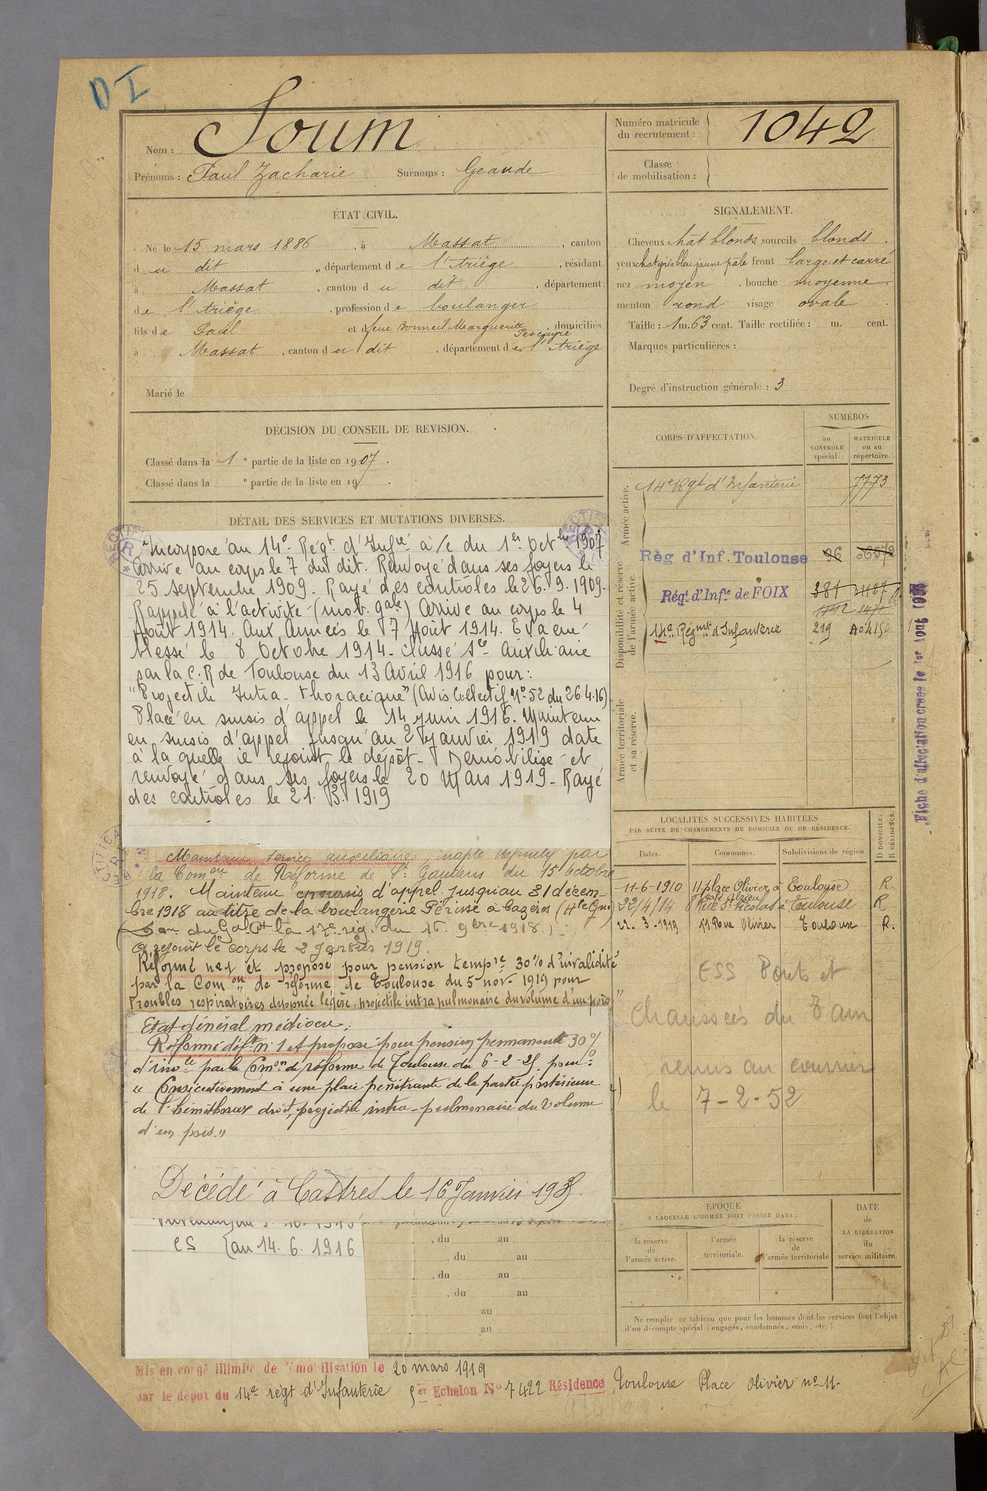 DI
Nom : Soum
Prénoms : Paul Zacharie Surnoms : Geaude
Numéro matricule du recrutement : 1042
Classe de mobilisation :
ÉTAT CIVIL.
Né le 15 mars 1886, à Massat, canton
du dit, département de l'Ariège, résidant
à Massat, canton du dit, département
de l'Ariège, profession de boulanger
fils de Paul et de feue Bonneil Marguerite, domiciliés
à Massat, canton du dit, département de l'Ariège
Marié le
SIGNALEMENT.
Cheveux chat blonds sourcils blonds.
yeux front large et carré
nez moyen, bouche moyenne.
menton rond visage ovale
Taille : 1 m. 63 cent. Taille rectifiée : m. cent.
Marques particulières :
Degré d'instruction générale : 3
DÉCISION DU CONSEIL DE REVISION.
Classé dans la 1e partie de la liste en 1907.
Classé dans la e partie de la liste en 19
CORPS D'AFFECTATION.
NUMÉROS
au CONTRÔLE spécial.
MATRICULE ou au répertoire.
Armée active.
14e Rgt d'Infanterie 7773
Disponibilité et réserve de l'armée active.
Règ d'Inf. Toulouse 96
Régt. d'Infie de FOIX
14e Régmt d'Infanterie 219
Armée territoriale et sa réserve.
Fiche d'affectation créée le 1er Août
DÉTAIL DES SERVICES ET MUTATIONS DIVERSES.
Incorporé au 14e Régt d'Infie à/c du 1er Octbre 1907
Arrivé au corps le 7 du dit. Renvoyé dans ses foyers le
25 septembre 1909. Rayé des contrôles le 26.9.1909.
Rappelé à l'activité (mob. gale) Arrivé au corps le 4
Août 1914. Aux Armées le 17 Août 1914. Evacué
blessé le 8 Octobre 1914. Classé Sce Auxiliaire
par la C.R de Toulouse du 13 Avril 1916 pour :
"Projectile Intra-thoracique" (Avis Collectif No 52 du 26 4.16)
Placé en sursis d'appel le 14 juin 1916. Maintenu
en sursis d'appel jusqu'au 2 janvier 1919 date
à laquelle il rejoint le dépôt. Démobilisé et
renvoyé dans ses foyers le 20 Mars 1919. Rayé
des contrôles le 21.3.1919
Maintenu service auxiliaire, inapte par
la Comon de Réforme de St Gaudens du 15 Octobre
1918. Maintenu en sursis d'appel jusqu'au 31 décem-
bre 1918 au titre de la boulangerie Périssé à Cazères (Hte Gne)
A rejoint le corps le 2 Janvier 1919.
Réformé no 1 et proposé pour pension tempre 30% d'invalidité
par la Comon de réforme de Toulouse du 5 nov. 1919 pour
troubles respiratoires dyspnée légère, projectile intra pulmonaire du volume d'un pois
Etat général médiocre,
Réformé déft no 1 et proposé pour pension permanente 30%
d'invte par la Comon de réforme de Toulouse du 6-2-25 pour :
"Consécutivement à une plaie pénétrante de la partie postérieure
de l'hémithorax droit, projectile intra-pulmonaire du volume
d'un pois."
Décédé à Castres le 16 Janvier 193
CS au 14.6.1916
, du au
, du au
, du au
, du au
au
au
LOCALITÉS SUCCESSIVES HABITÉES
PAR SUITE DE CHANGEMENTS DE DOMICILE OU DE RÉSIDENCE.
Dates. Communes. Subdivisions de région. D DOMICILE. R RÉSIDENCE.
11-6-1910 11 place Olivier à Toulouse R.
22/4/14 Rue St Nicolas à Toulouse R
22.3.1919 11 Place Olivier Toulouse R.
ESS Ponts et
Chaussées du Tarn
remis au courrier
le 7-2-52
ÉPOQUE
À LAQUELLE L'HOMME DOIT PASSER DANS :
la réserve de l'armée active.
l'armée territoriale.
la réserve de l'armée territoriale
DATE de LA LIBÉRATION du service militaire.
Ne remplir ce tableau que pour les hommes dont les services font l'objet
d'un décompte spécial (engagés, condamnés, omis, etc.).
Mis en congé illimité de démobilisation le 20 mars 1919
par le dépôt du 14e régt d'Infanterie 5er Echelon No 7422 Résidence Toulouse Place Olivier no 11.